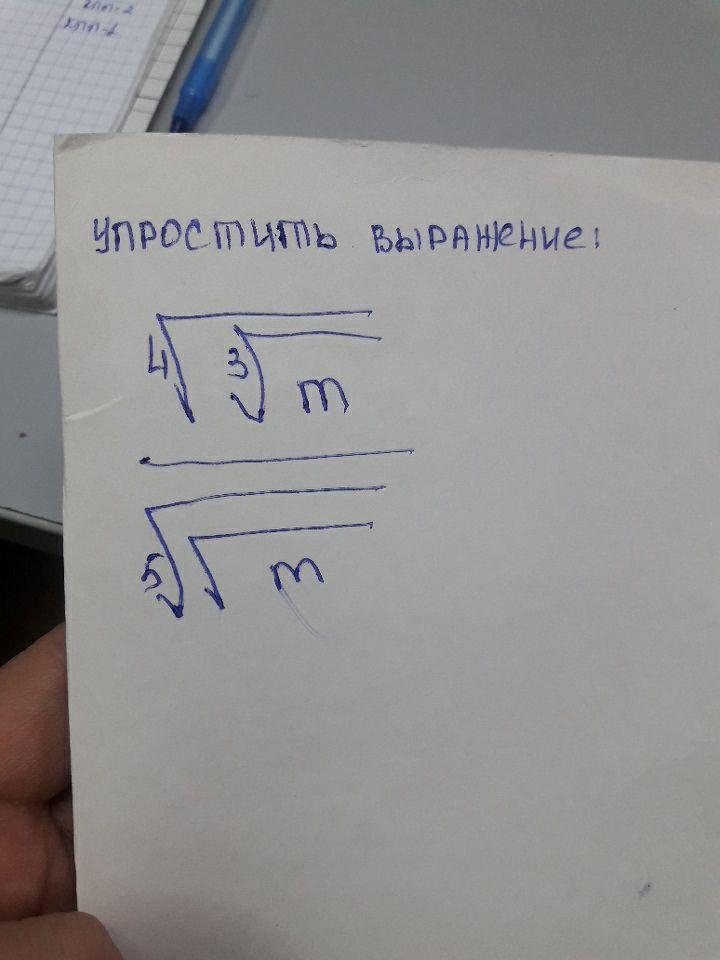 2пп-2
2пп-1
Упростить выражение:
4√ 3√ m
5√ √ m